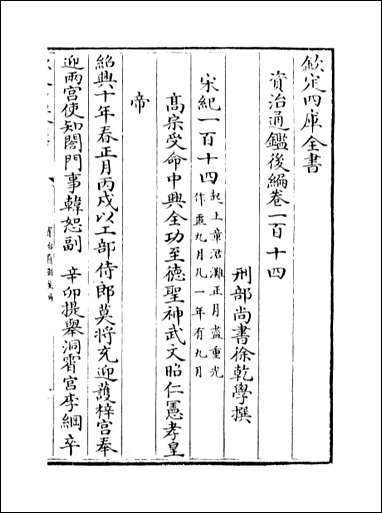 欽定四庫全書
資治通鑑後編卷一百十四
刑部尚書徐乾學撰
宋紀一百十四起上章涒灘正月盡重光作噩九月凡一年有九月
高宗受命中興全功至德聖神武文昭仁憲孝皇
帝
紹興十年春正月丙戌以工部侍郎莫將充迎護梓宮奉
迎兩宮使知閤門事韓恕副 辛卯提舉洞霄宮李綱卒